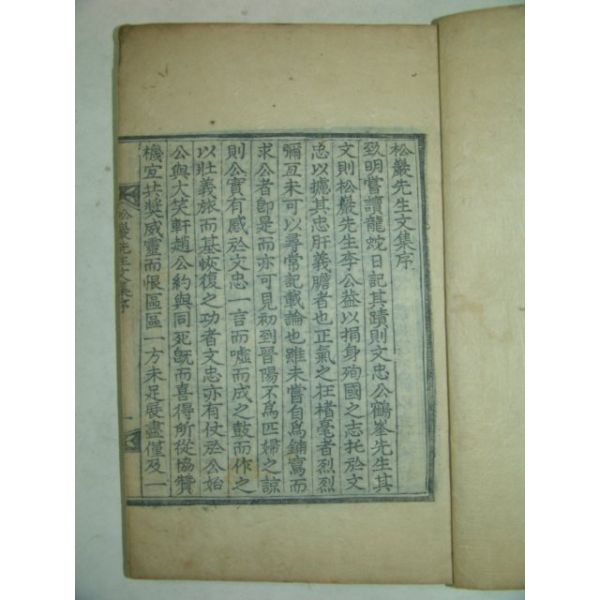 松巖先生文集序
致明嘗讀龍蛇日記其蹟則文忠公鶴峯先生其
文則松巖先生李公益以捐身殉國之志托於文
忠以攄其忠肝義膽者也正氣之在楮毫者烈烈
彌亙未可以尋常記載論也雖未嘗自爲鋪寫而
求公者卽是而亦可見初到晉陽不爲匹婦之諒
則公實有感於文忠一言而噓而成之鼓而作之
以壯義旅而基恢復之功者文忠亦有仗於公始
公與大笑軒趙公約與同死旣而喜得所從協贊
機宜共奬威靈而限區區一方未足展盡僅及一
松巖先生文集序
一